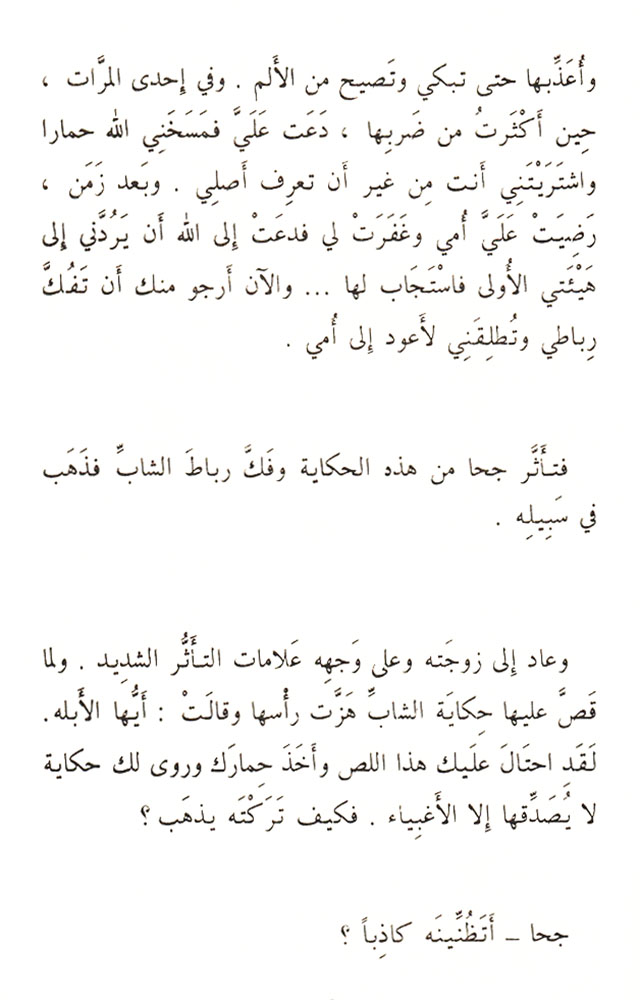 وأُعَذِّبها حتى تبكي وتَصيح من الأَلم . وفي إِحدى المرَّات ،
حِين أَكْثَرتُ من ضَربِها ، دَعَت عَلَيَّ فمَسَخَنِي الله حمارا
واشتَرَيْتَنِي أَنت مِن غير أَن تعرِف أَصلِي . وبَعد زَمَن ،
رَضِيَتْ عَلَيَّ أُمي وغَفَرَتْ لي فدعَتْ إِلى الله أَن يَرُدَّني إِلى
هَيْئَتي الأُولى فاسْتَجَاب لها ... والآن أَرجو منك أَن تَفُكَّ
رِباطي وتُطلِقَنِي لأَعود إِلى أُمي .
فتأَثَّر جحا من هذه الحكاية وفَكَّ رباطَ الشابِّ فذَهَب
في سَبِيلِه .
وعاد إِلى زوجَته وعلى وَجهِه عَلامات التأَثُّر الشدِيد . ولما
قَصَّ عليها حِكايَة الشابِّ هَزَّت رأْسها وقالَتْ : أَيُّها الأَبله.
لَقَدِ احتَالَ علَيك هذا اللص وأَخَذَ حِمارَك وروى لك حكاية
لا يُصَدِّقها إِلا الأَغبِياء . فكيف تَرَكْتَه يذهَب ؟
جحا – أَتَظُنِّينَه كاذِباً ؟